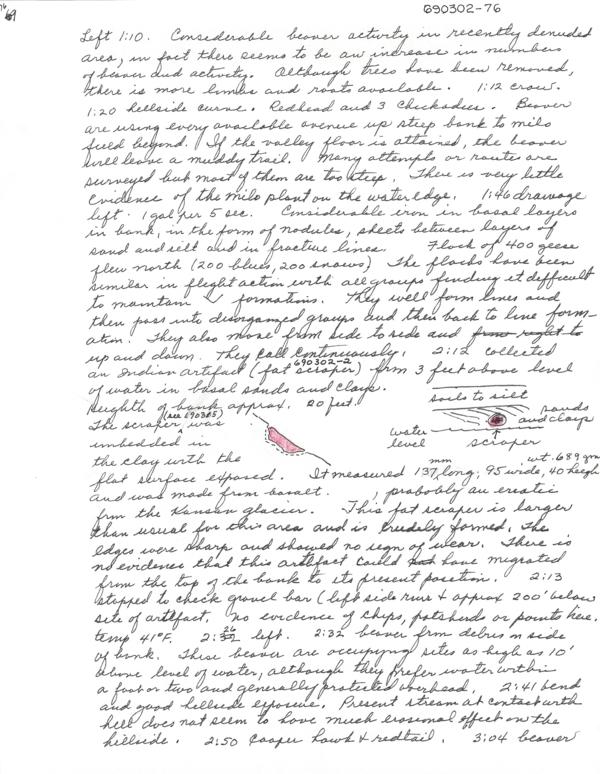 76
69
690302-76
Left 1:10. Considerable beaver activity in recently denuded
area, in fact there seems to be an increase in numbers
of beaver and activity. Although trees have been removed,
there is more limbs and roots available. 1:12 crow.
1:20 hillside curve. Redhead and 3 Chickadees. Beaver
are using every available avenue up steep bank to milo
field beyond. If the valley floor is attained, the beaver
will leave a muddy trail. Many attempts or routes are
surveyed but most of them are too steep. There is very little
evidence of the milo plant on the water edge. 1:46 drawage
left. 1 gal per 5 sec. Considerable iron in basal layers
in bank, in the form of nodules, sheets between layers of
sand and silt and in fracture lines. Flock of 400 geese
flew north (200 blues, 200 snows) The flocks have been
similar in flight action with all groups finding it difficult
to maintain V formations. They will form lines and
then pass into disorganized groups and then back to line form-
ation. They also move from side to side and from right to
up and down. They call continuously. 2:12 collected
690302-2
an Indian artifact (fat scraper) from 3 feet above level
of water in basal sands and clays.
Height of bank approx. 20 feet.
(see 690305)
The scraper, was
imbedded in
the clay with the
soils to silt
sands
and clays
water
level
scraper
flat surface exposed. It measured 137 mm long, 95 wide, 40 high
wt. 689 gm
and was made from basalt. , probably an erratic
from the Kansan glacier. This fat scraper is larger
than usual for this area and is crudely formed. The
edges were sharp and showed no sign of wear. There is
no evidence that this artifact could not have migrated
from the top of the bank to its present position. 2:13
stopped to check gravel bar (left side river & approx 200' below
site of artifact. No evidence of chips, potsherds or points here.
temp 41°F. 2:26 left. 2:32 beaver from debris on side
of bank. These beaver are occupying sites as high as 10'
above level of water, although they prefer water within
a foot or two and generally protected overhead. 2:41 bend
and good hillside exposure. Present stream at contact with
hill does not seem to have much erosional effect on the
hillside. 2:50 Cooper hawk & redtail. 3:04 beaver